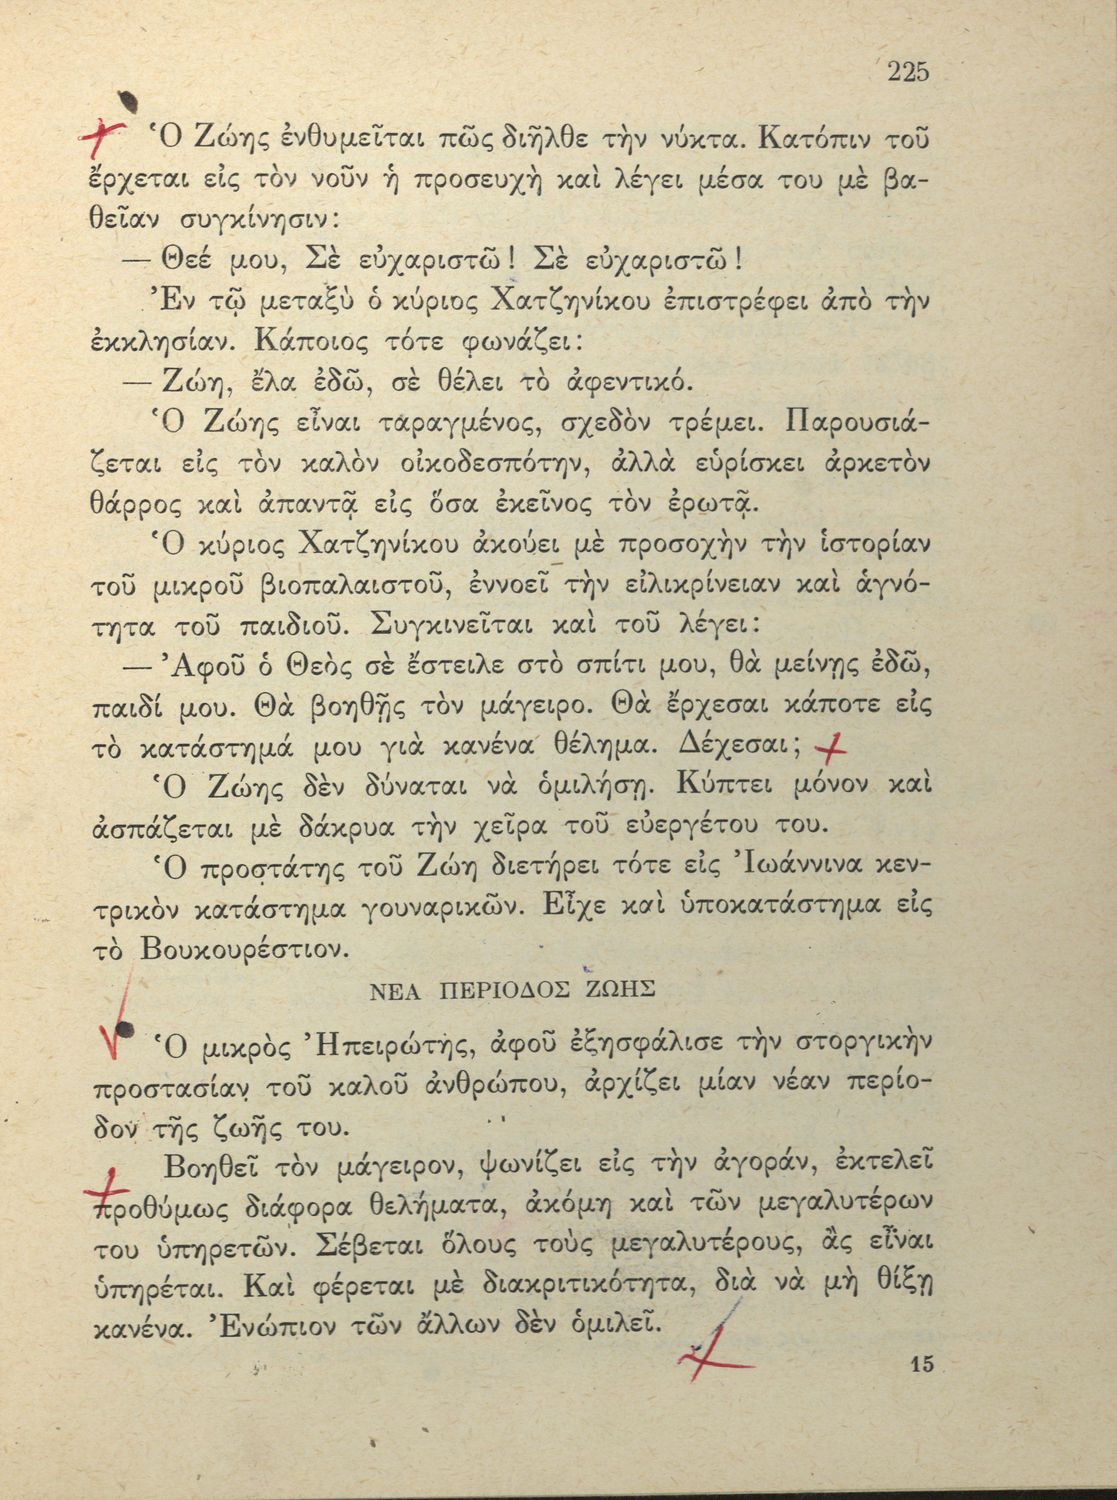 225
Ὁ Ζώης ἐνθυμεῖται πῶς διῆλθε τὴν νύκτα. Κατόπιν τοῦ
ἔρχεται εἰς τὸν νοῦν ἡ προσευχὴ καὶ λέγει μέσα του μὲ βα-
θεῖαν συγκίνησιν:
— Θεέ μου, Σὲ εὐχαριστῶ! Σὲ εὐχαριστῶ!
Ἐν τῷ μεταξὺ ὁ κύριος Χατζηνίκου ἐπιστρέφει ἀπὸ τὴν
ἐκκλησίαν. Κάποιος τότε φωνάζει:
— Ζώη, ἔλα ἐδῶ, σὲ θέλει τὸ ἀφεντικό.
Ὁ Ζώης εἶναι ταραγμένος, σχεδὸν τρέμει. Παρουσιά-
ζεται εἰς τὸν καλὸν οἰκοδεσπότην, ἀλλὰ εὑρίσκει ἀρκετὸν
θάρρος καὶ ἀπαντᾷ εἰς ὅσα ἐκεῖνος τὸν ἐρωτᾷ.
Ὁ κύριος Χατζηνίκου ἀκούει μὲ προσοχὴν τὴν ἱστορίαν
τοῦ μικροῦ βιοπαλαιστοῦ, ἐννοεῖ τὴν εἰλικρίνειαν καὶ ἁγνό-
τητα τοῦ παιδιοῦ. Συγκινεῖται καὶ τοῦ λέγει:
— Ἀφοῦ ὁ Θεὸς σὲ ἔστειλε στὸ σπίτι μου, θὰ μείνῃς ἐδῶ,
παιδί μου. Θὰ βοηθῇς τὸν μάγειρο. Θὰ ἔρχεσαι κάποτε εἰς
τὸ κατάστημά μου γιὰ κανένα θέλημα. Δέχεσαι;
Ὁ Ζώης δὲν δύναται νὰ ὁμιλήσῃ. Κύπτει μόνον καὶ
ἀσπάζεται μὲ δάκρυα τὴν χεῖρα τοῦ εὐεργέτου του.
Ὁ προστάτης τοῦ Ζώη διετήρει τότε εἰς Ἰωάννινα κεν-
τρικὸν κατάστημα γουναρικῶν. Εἶχε καὶ ὑποκατάστημα εἰς
τὸ Βουκουρέστιον.
ΝΕΑ ΠΕΡΙΟΔΟΣ ΖΩΗΣ
Ὁ μικρὸς Ἠπειρώτης, ἀφοῦ ἐξησφάλισε τὴν στοργικὴν
προστασίαν τοῦ καλοῦ ἀνθρώπου, ἀρχίζει μίαν νέαν περίο-
δον τῆς ζωῆς του.
Βοηθεῖ τὸν μάγειρον, ψωνίζει εἰς τὴν ἀγοράν, ἐκτελεῖ
προθύμως διάφορα θελήματα, ἀκόμη καὶ τῶν μεγαλυτέρων
του ὑπηρετῶν. Σέβεται ὅλους τοὺς μεγαλυτέρους, ἂς εἶναι
ὑπηρέται. Καὶ φέρεται μὲ διακριτικότητα, διὰ νὰ μὴ θίξῃ
κανένα. Ἐνώπιον τῶν ἄλλων δὲν ὁμιλεῖ.
15